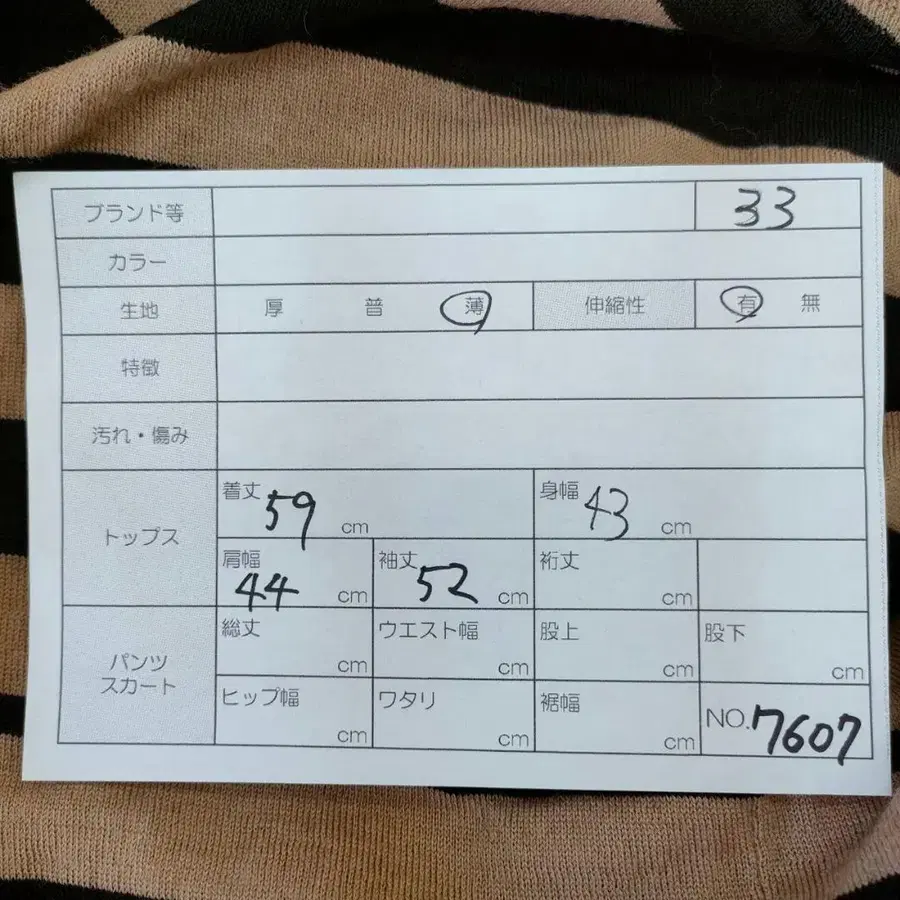 ブランド等 33
カラー
生地 厚 普 薄 伸縮性 有 無
特徴
汚れ・傷み
トップス
着丈 59 cm 身幅 43 cm
肩幅 44 cm 袖丈 52 cm 裄丈 cm
パンツ
スカート
総丈 cm ウエスト幅 cm 股上 cm 股下 cm
ヒップ幅 cm ワタリ cm 裾幅 cm NO.7607